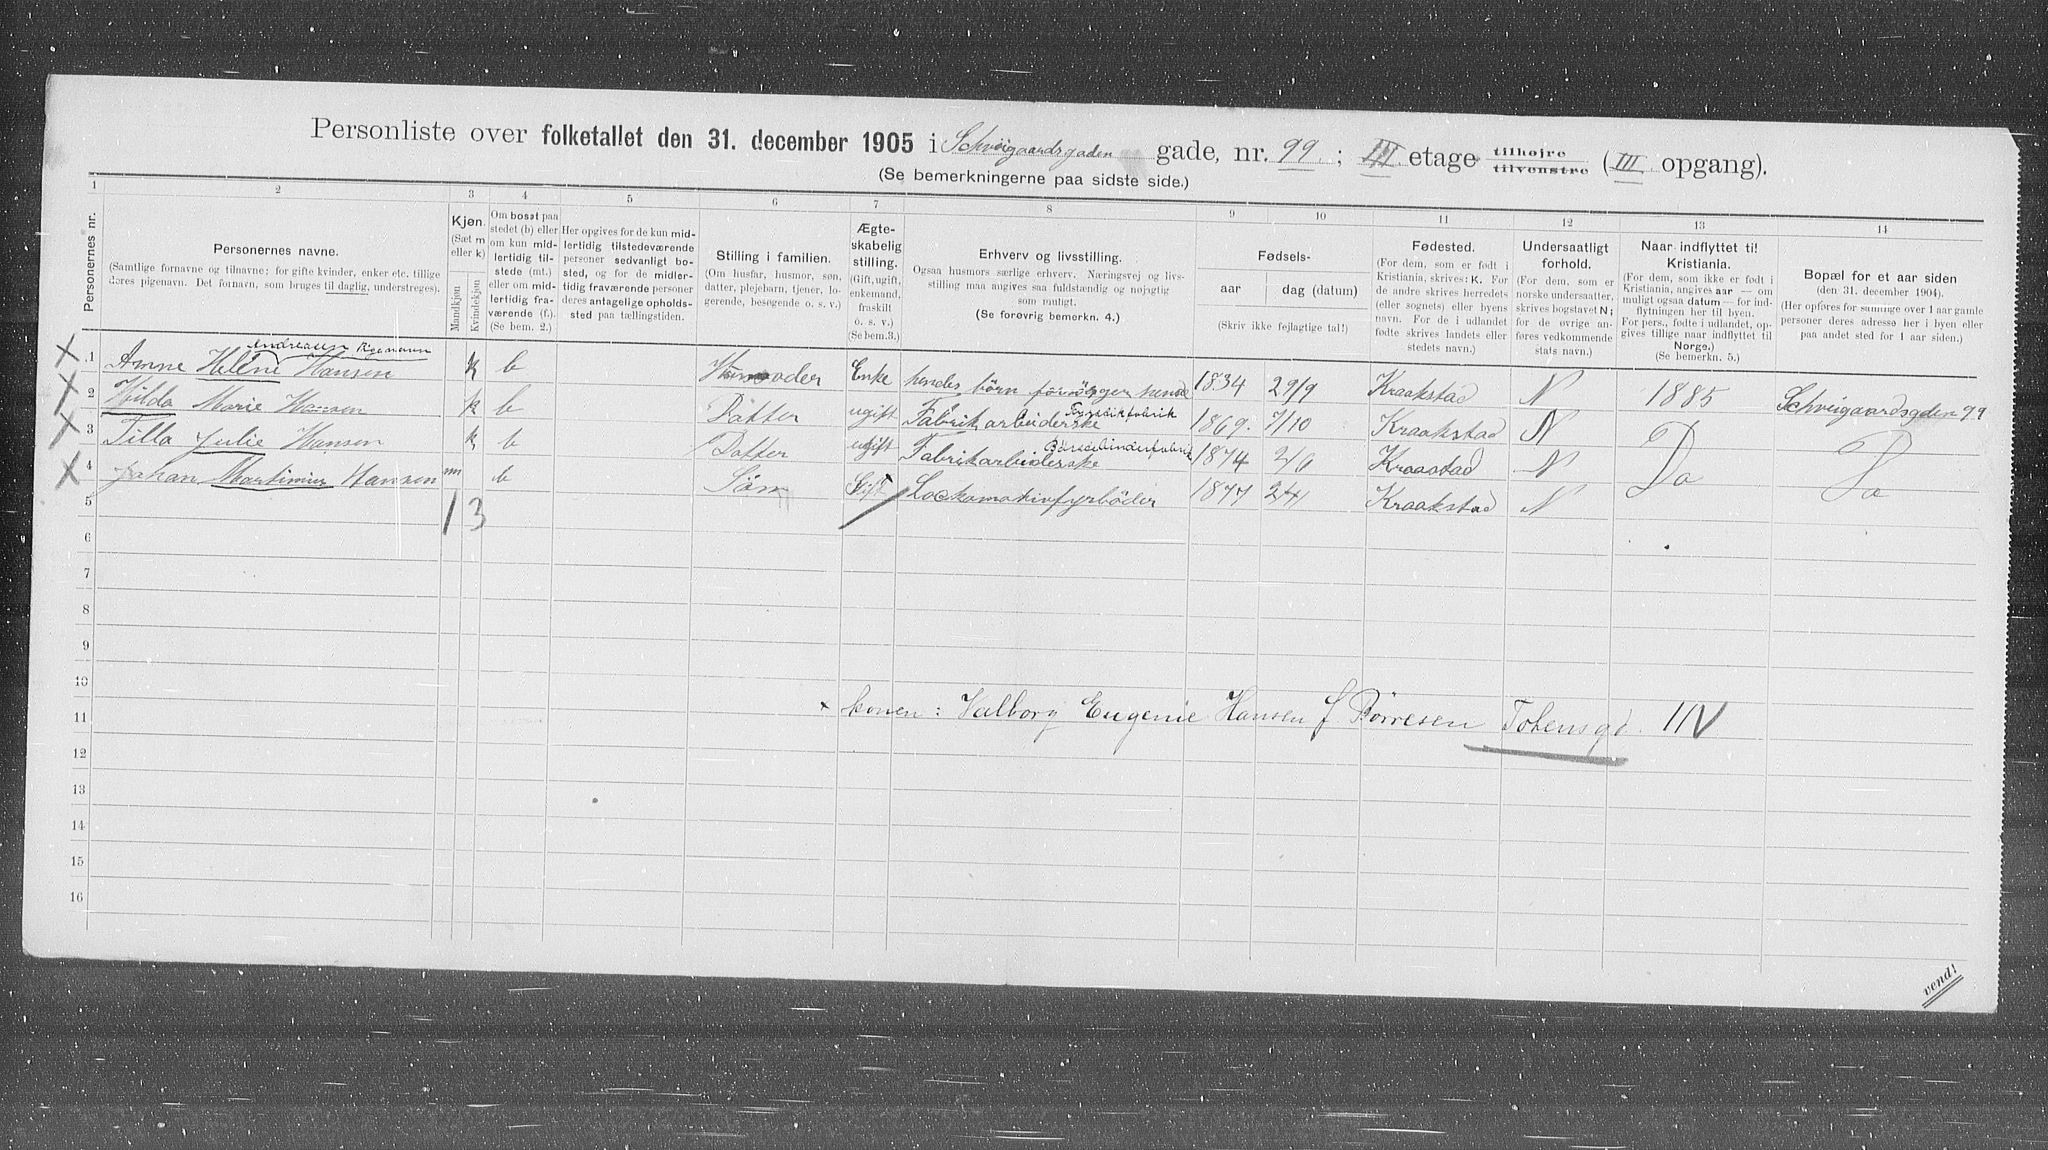 Personliste over folketallet den 31. december 1905 i Schveigaardsgaden gade, nr. 99. ; III etage tilhøjre tilvenstre (III opgang).
(Se bemerkningerne paa sidste side.)
1 2 3 4 5 6 7 8 9 10 11 12 13 14
Personernes nr.
Personernes navne.
(Samtlige fornavne og tilnavne; for gifte kvinder, enker etc. tillige
deres pigenavn. Det fornavn, som bruges til daglig, understreges).
Kjøn.
(Sæt m
eller k)
Mandkjøn
Kvindekjøn
Om bosat paa
stedet (b) eller
om kun mid-
lertidig til-
stede (mt.)
eller om mid-
lertidig fra-
værende (f.).
(Se bem. 2.)
Her opgives for de kun mid-
lertidig tilstedeværende
personer sedvanligt bo-
sted, og for de midler-
tidig fraværende personer
deres antagelige opholds-
sted paa tællingstiden.
Stilling i familien.
(Om husfar, husmor, søn,
datter, plejebarn, tjener, lo-
gerende, besøgende o. s. v.)
Ægte-
skabelig
stilling.
(Gift, ugift,
enkemand,
fraskilt
o. s. v.)
(Se bem. 3.)
Erhverv og livsstilling.
Ogsaa husmors særlige erhverv. Næringsvej og livs-
stilling maa angives saa fuldstændig og nøjagtig
som muligt.
(Se forøvrig bemerkn. 4.)
Fødsels-
aar dag (datum)
(Skriv ikke fejlagtige tal!)
Fødested.
(For dem, som er født i
Kristiania, skrives: K. For
de andre skrives herredets
(eller sognets) eller byens
navn. For de i udlandet
fødte skrives landets eller
stedets navn.)
Undersaatligt
forhold.
(For dem, som er
norske undersaatter,
skrives bogstavet N;
for de øvrige an-
føres vedkommende
stats navn.)
Naar indflyttet til
Kristiania.
(For dem, som ikke er født i
Kristiania, angives aar — om
muligt ogsaa datum — for ind-
flytningen her til byen.
For pers., fødte i udlandet, op-
gives tillige naar indflyttet til
Norge.)
(Se bemerkn. 5.)
Bopæl for et aar siden
(den 31. december 1904).
(Her opføres for samtlige over 1 aar gamle
personer deres adresse her i byen eller
paa andet sted for 1 aar siden.)
Andreasen Pigenavn
1 Anne Helene Hansen k b Enke hendes börn 1834 29/9 Kraakstad N 1885 Schveigaardsgden 99
2 Hilda Marie Hansen k b Datter ugift Fabrikarbeiderske 1869. 7/10 Kraakstad N Do Do
3 Tilla Julie Hansen k b Datter ugift Fabrikarbeiderske Börstebinderfabrik 1874 2/6 Kraastad N
4 Johan Martinius Hansen m b Sön Gift Lockomotivfyrböder 1877 2/4 Kraakstad N
5 1 3
6
7
8
9
10
11 × konen: Valborg Eugenie Hansen f. Børresen Totensgd.
12
13
14
15
16
vend!